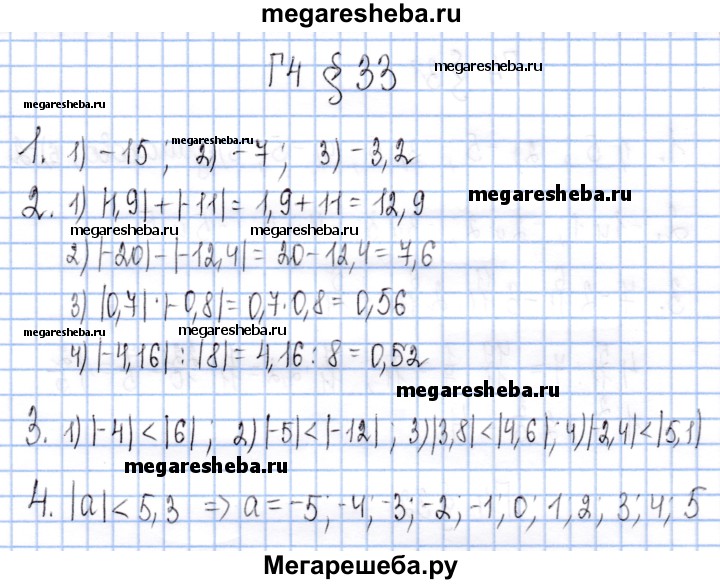 megaresheba.ru
Г4 § 33
megaresheba.ru
megaresheba.ru
megaresheba.ru
1. 1) -15 ; 2) -7 ; 3) -3,2
2. 1) |1,9| + |-11| = 1,9 + 11 = 12,9
megaresheba.ru
megaresheba.ru
megaresheba.ru
2) |-20| - |-12,4| = 20 - 12,4 = 7,6
3) |0,7| · |-0,8| = 0,7 · 0,8 = 0,56
megaresheba.ru
megaresheba.ru
4) |-4,16| : |8| = 4,16 : 8 = 0,52
megaresheba.ru
3. 1) |-4| < |6| ; 2) |-5| < |-12| ; 3) |3,8| < |4,6| ; 4) |-2,4| < |5,1|
megaresheba.ru
4. |a| < 5,3 => a = -5; -4; -3; -2; -1; 0; 1, 2; 3; 4; 5
Мегарешеба.ру